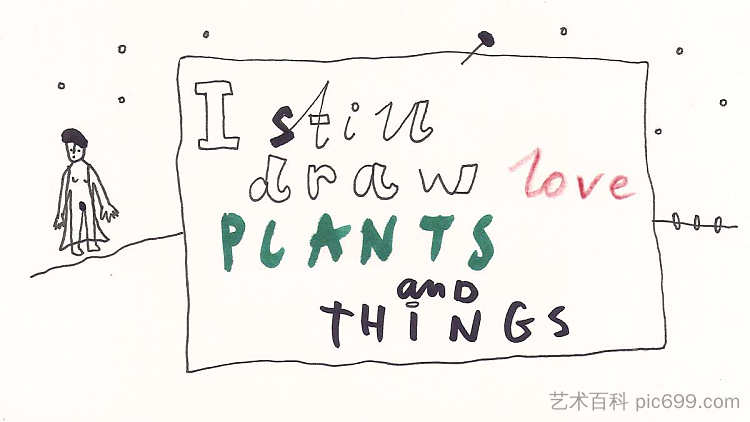 I still
draw love
PLANTS
anD
THiNGS
艺术百科 pic699.com